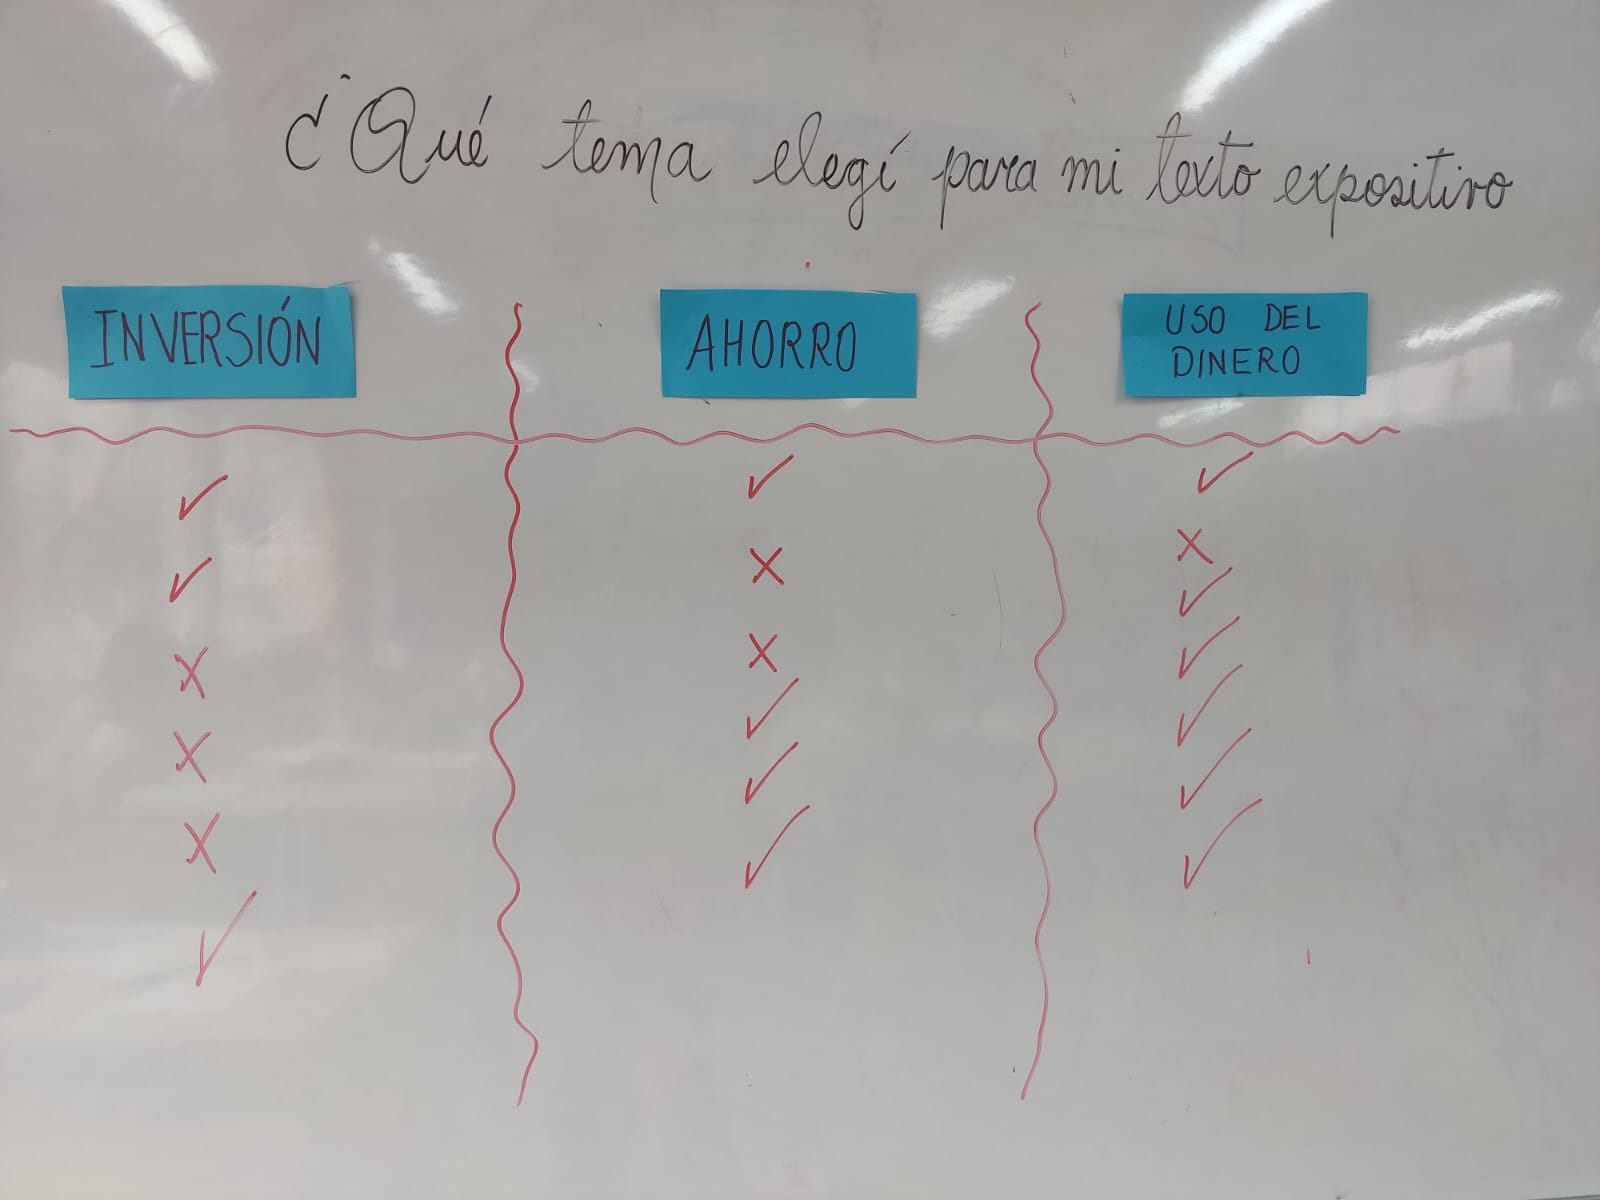 ¿Qué tema elegí para mi texto expositivo
INVERSIÓN
AHORRO
USO DEL
DINERO